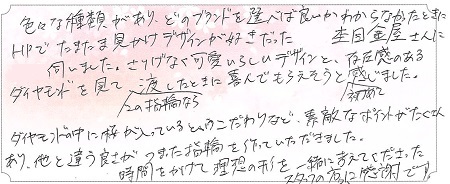 色々な種類があり、どのブランドを選べば良いかわからなかったときに
HPでたまたま見かけデザインが好きだった 杢目金屋さんに
伺いました。さりげなく可愛いらしいデザインと、存在感のある
ダイヤモンドを見て 渡したときに喜んでもらえそうと感じました。
この指輪なら 初めて
ダイヤモンドの中に桜が入っているというこだわりなど、素敵なポイントがたくさん
あり、他と違う良さがつまった指輪を作っていただきました。
時間をかけて理想の形を一緒に考えてくださった
スタッフの方に感謝です!